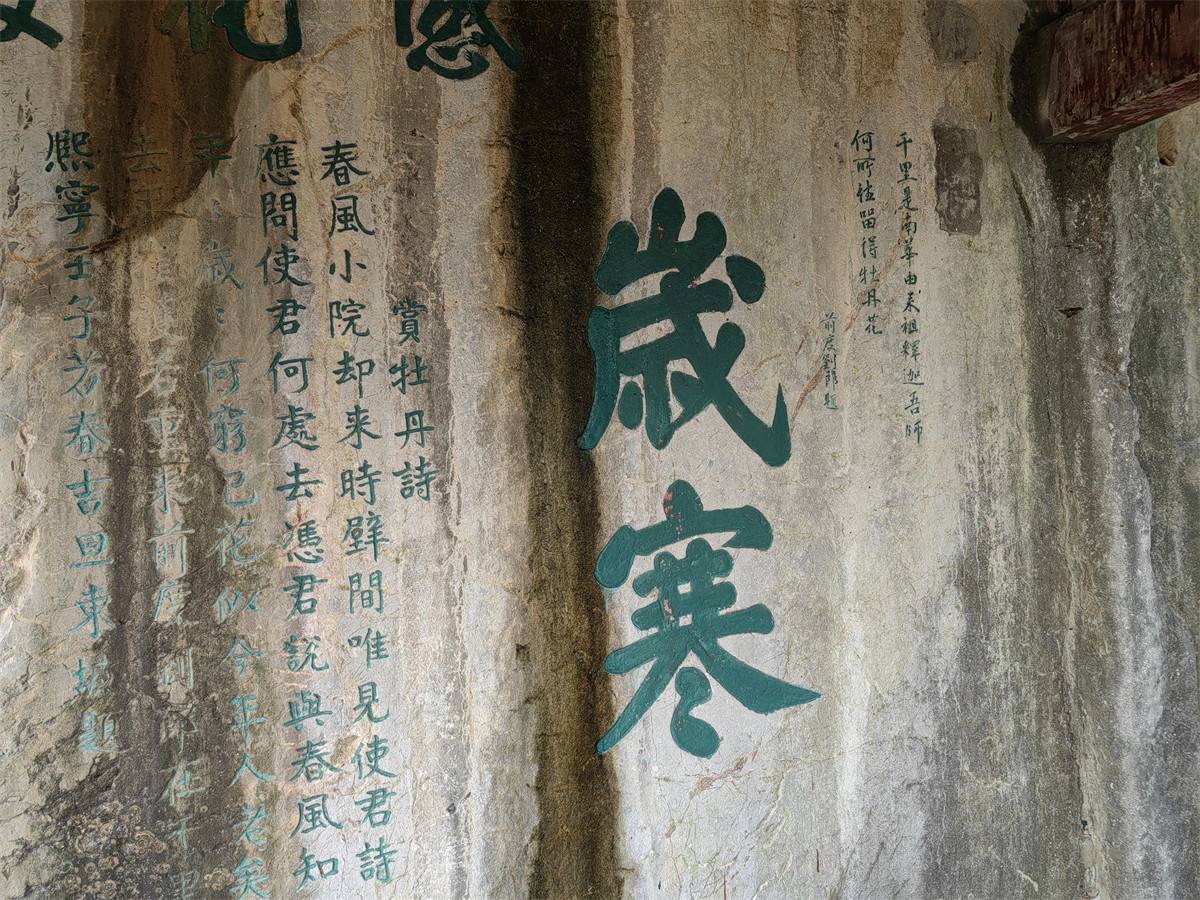 千里是南華由来祖釋迦吾師
何所留得牡丹花
前度劉郎題
歳寒
賞牡丹詩
春風小院却来時壁間唯見使君詩
應問使君何處去憑君説與春風知
年〻歲〻何窮已花似今年人老矣
去年若重来前度劉郎在千里
熙寧壬子芳春吉旦東坡題